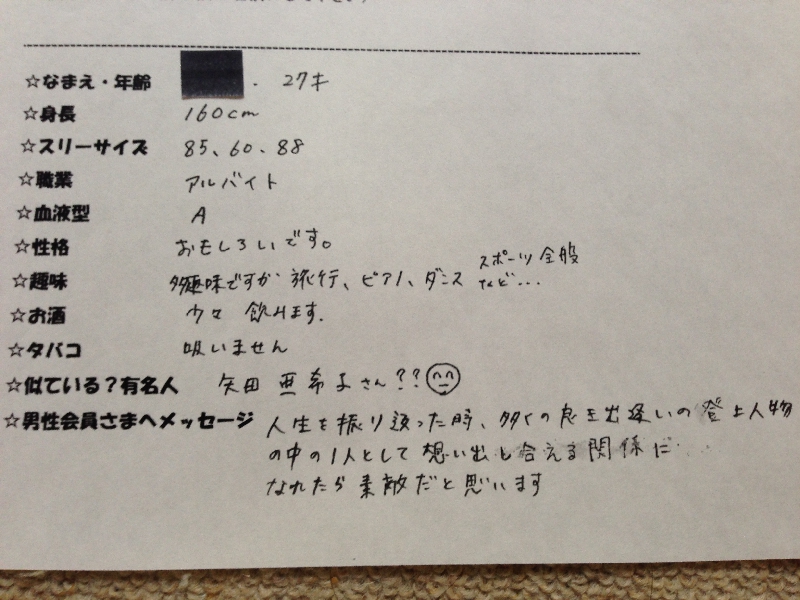 ☆なまえ・年齢 . 27才
☆身長 160cm
☆スリーサイズ 85、60、88
☆職業 アルバイト
☆血液型 A
☆性格 おもしろいです。
☆趣味 多趣味ですが 旅行、ピアノ、ダンス スポーツ全般
など…
☆お酒 少々 飲めます.
☆タバコ 吸いません
☆似ている?有名人 矢田 亜希子さん??
☆男性会員さまへメッセージ 人生を振り返った時、多くの良き出逢いの登上人物
の中の1人として想い出と合える関係に…
なれたら素敵だと思います